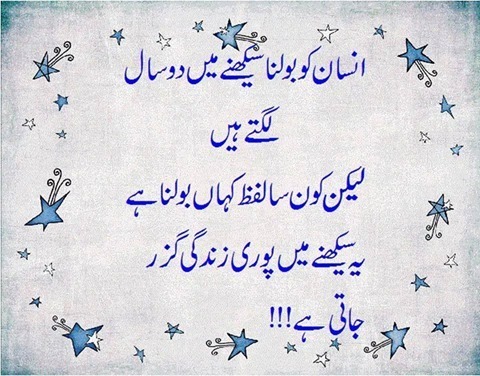 انسان کو بولنا سیکھنے میں دو سال
لگتے ہیں
لیکن کون سا لفظ کہاں بولنا ہے
یہ سیکھنے میں پوری زندگی گزر
جاتی ہے!!!